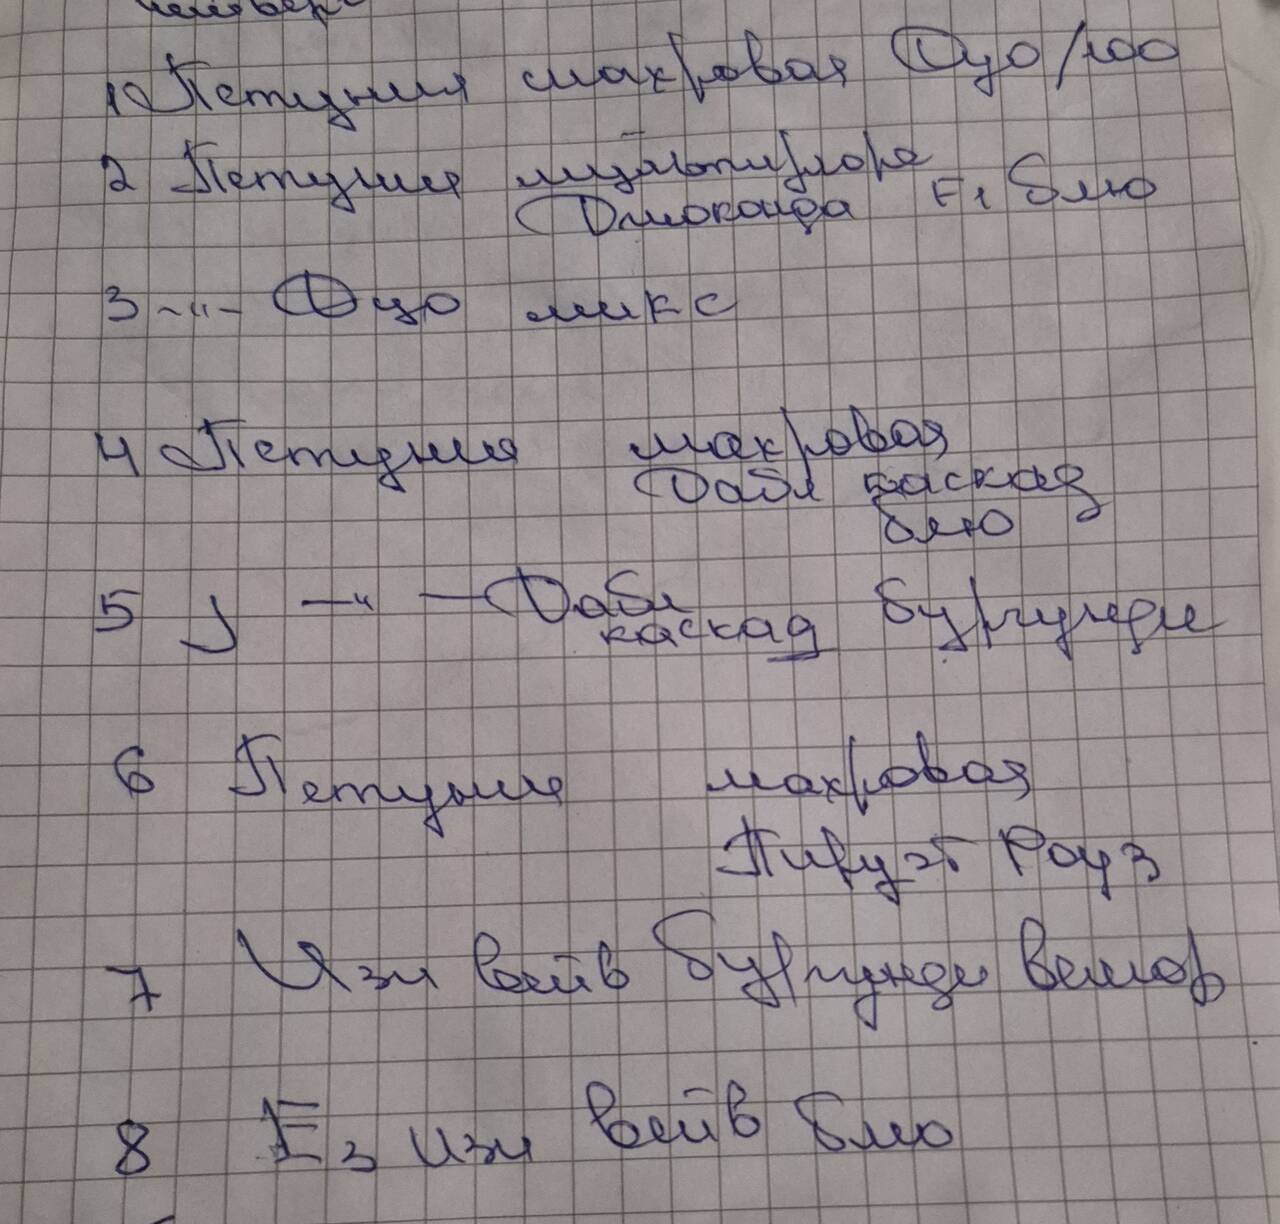 1 Петуния махровая Дуо/100
2 Петуния мультифлора
Джоконда F1 блю
3 -"- Дуо микс
4 Петуния махровая
Дабл каскад
блю
5 -"- Дабл бургунди
каскад
6 Петуния махровая
Пируэт Роуз
7 Изи вейв бургунди велюр
8 Ез изи вейв блю